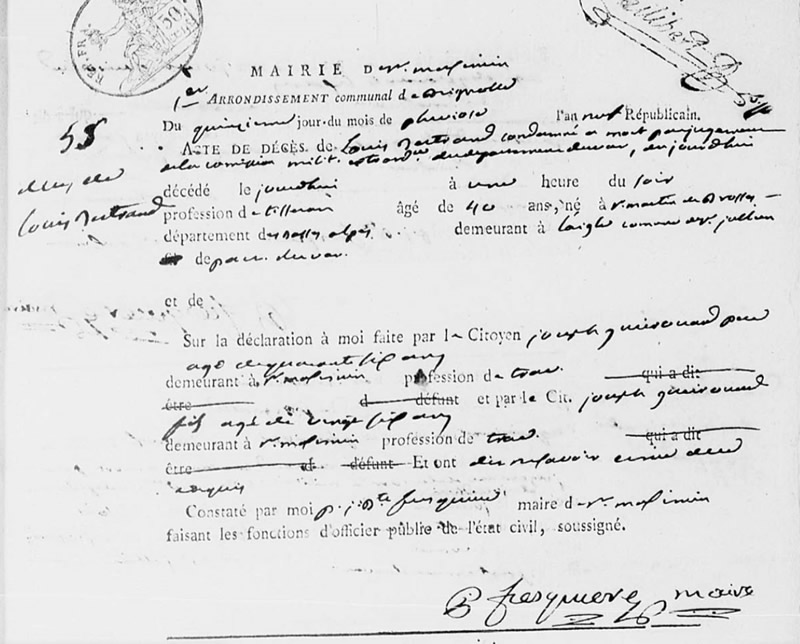 REP. FRA.
50
MAIRIE De St. maximin
1er ARRONDISSEMENT communal de Brignolle
Du quinzieme jour du mois de pluviose l'an neuf Républicain.
55
ACTE DE DÉCÈS de Louis Bertrand condamné a mort par jugement
de la comission milit. extraord. du departement du var, du jourdhui
deces de
Louis Bertrand
décédé le jourdhui à une heure du soir
profession de tisseran âgé de 40 ans, né à St. martin de Brosses
département des Basses alpes demeurant à comune de St. jullien
de var.
et de
Sur la déclaration à moi faite par le Citoyen joseph guerouard pere
agé de quarante six ans
demeurant à St. maximin profession de trav. qui a dit
être d défunt et par le Cit. joseph guerouard
fils agé de vingt six ans
demeurant à St. maximin profession de trav. qui a dit
être d défunt Et ont dit ne savoir ecrire de ce
requis
Constaté par moi p. j. Bte. fresquiere maire de St. maximin
faisant les fonctions d'officier public de l'état civil, soussigné.
B fresquiere maire